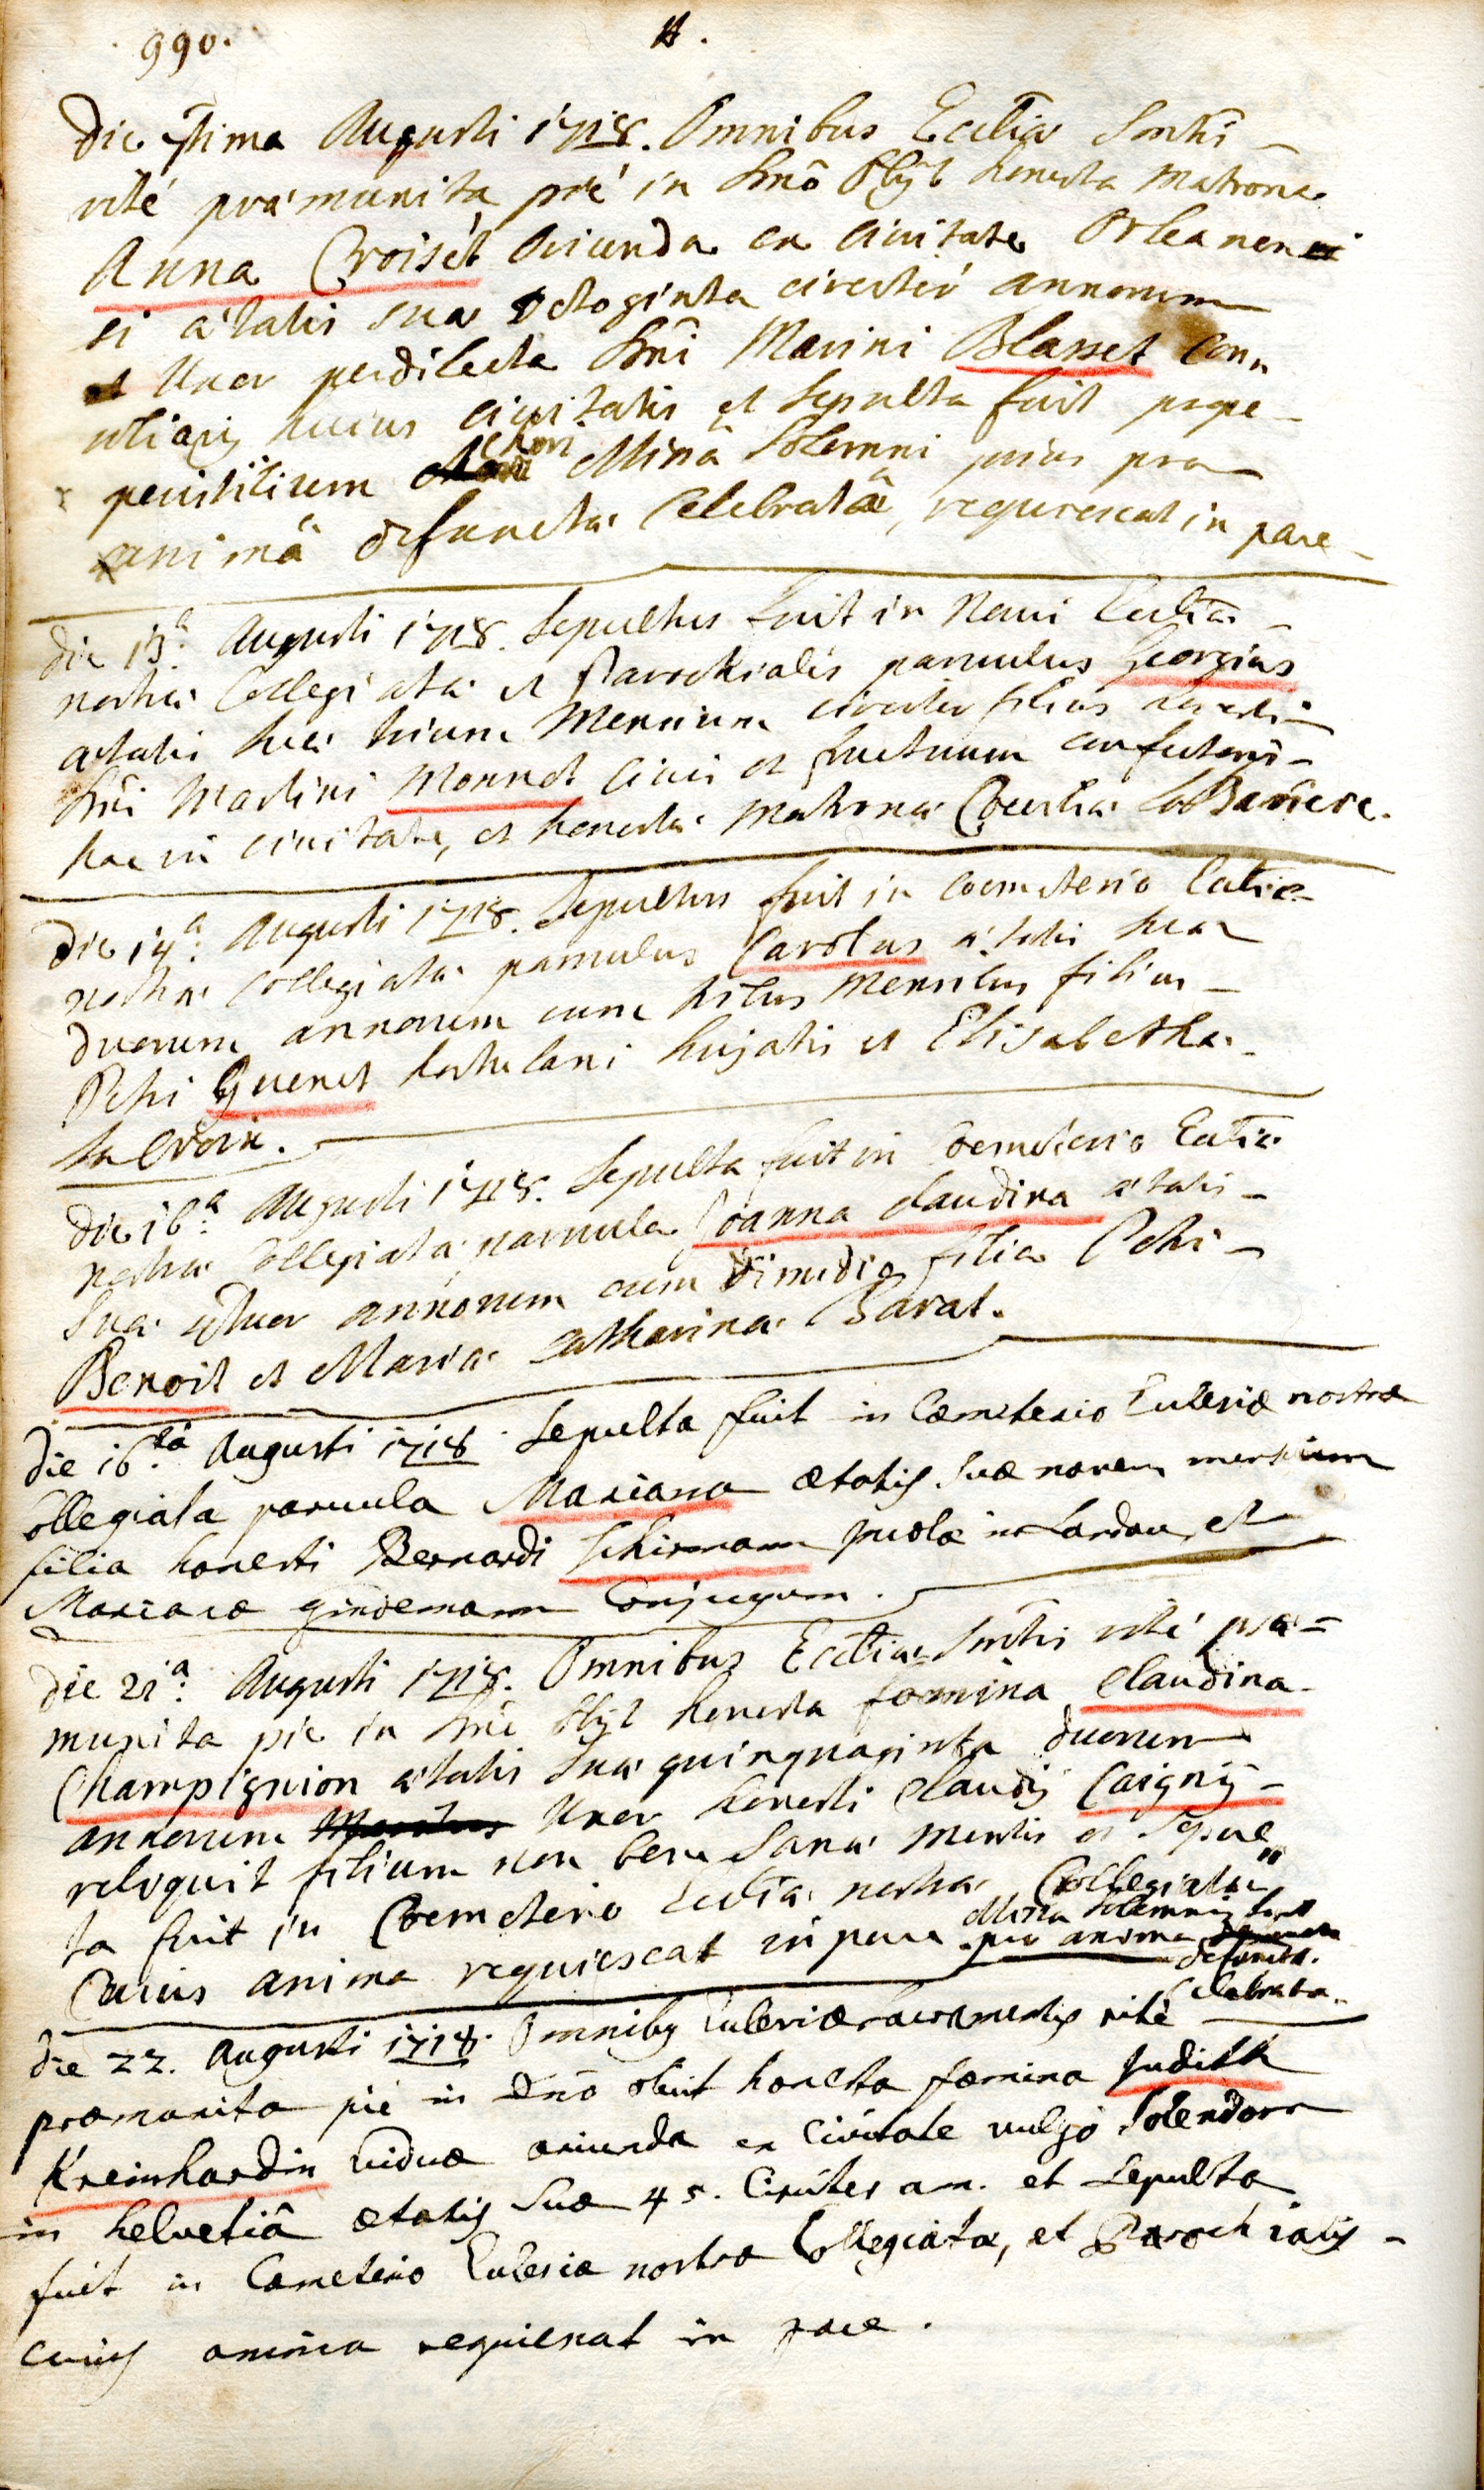 990.
Die 7tima Augusti 1718. Omnibus Ecclîæ Smtis
rité præmunita pié in dnô obijt honesta Matrona
Anna Croiset oriunda ex civitate Orleanen
si ætatis suæ octoginta circiter annorum
Uxor perdilecta dni Marini Blasset con„
siliarij huius civitatis et sepulta fuit prope
peristilium chori Missâ solemni prius pro
animâ defunctæ celebratâ, requiescat in pace
die 13.a Augusti 1718. Sepultus fuit in navi Ecclîæ
nostræ Collegiatæ et Parochialis parvulus Georgius
ætatis suæ trium mensium circiter filius honesti
dni Martini Monnet civis et
hac in civitate, et honestæ Matronæ Coeciliæ la Bariere.
die 14.a Augusti 1718. Sepultus fuit in coemeterio Ecclîæ
nostræ Collegiatæ parvulus Carolus ætatis suæ
duorum annorum cum tribus mensibus filius
Petri Quenet hortulani hujatis et Elisabethæ
la Croix.
die 16.a Augusti 1718. Sepulta fuit in coemeterio Ecclîæ
nostræ Collegiatæ parvula Joanna Claudina ætatis
suæ 4tuor annorum cum dimidio filia Petri
Benoit et Mariæ Catharinæ Barat.
die 16.ta Augusti 1718. Sepulta fuit in Cæmeterio Ecclesiæ nostræ
Collegiata parvula Mariana ætatis suæ novem mensium
filia honesti Bernardi Schirmann in Landau, et
Marianæ Gindemann Conjugum.
die 21.a Augusti 1718. Omnibus Ecclîæ Smtis rité præ=
munita pié in dnô obijt honesta foemina Claudina
Champignion ætatis suæ quinquaginta duorum
annorum Uxor honesti Claudij Caigny
reliquit filium non bene sanæ mentis et sepul„
ta fuit in Coemeterio Ecclîæ nostræ Collegiatæ
Missa solemnis fuit
Cuius anima requiescat in pace. pro anima
defuncta.
celebrata.
die 22. Augusti 1718. Omnibus Ecclesiæ sacramentis rité
præmunita pié in Dnô obiit honesta fæmina Judith
Kreinhardin vidua oriunda ex Civitate vulgò Solendorn
in helvetiâ ætatis suæ 45. Circiter an. et sepulta
fuit in Cæmeterio Ecclesiæ nostræ Collegiatæ, et Parochialis
cuius anima requiescat in pace.